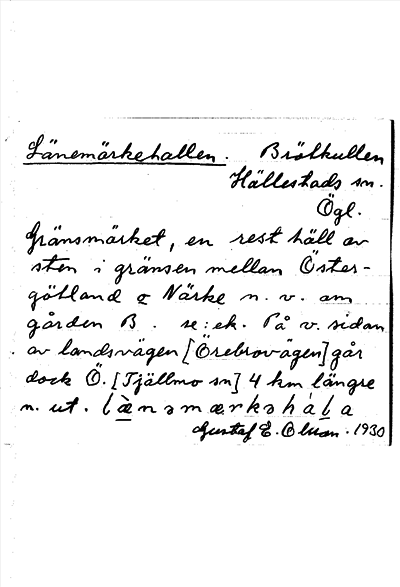 Länemärkehallen. Brötkullen
Hällestads sn.
Ögl.
Gränsmärket, en rest häll av
sten i gränsen mellan Öster-
götland o Närke n. v. om
gården B. se: ek. På v. sidan
av landsvägen [Örebrovägen] går
dock Ö. [Tjällmo sn] 4 km längre
n. ut. læ̀nəmærkəháḷa
Gustaf E. Olsson. 1930